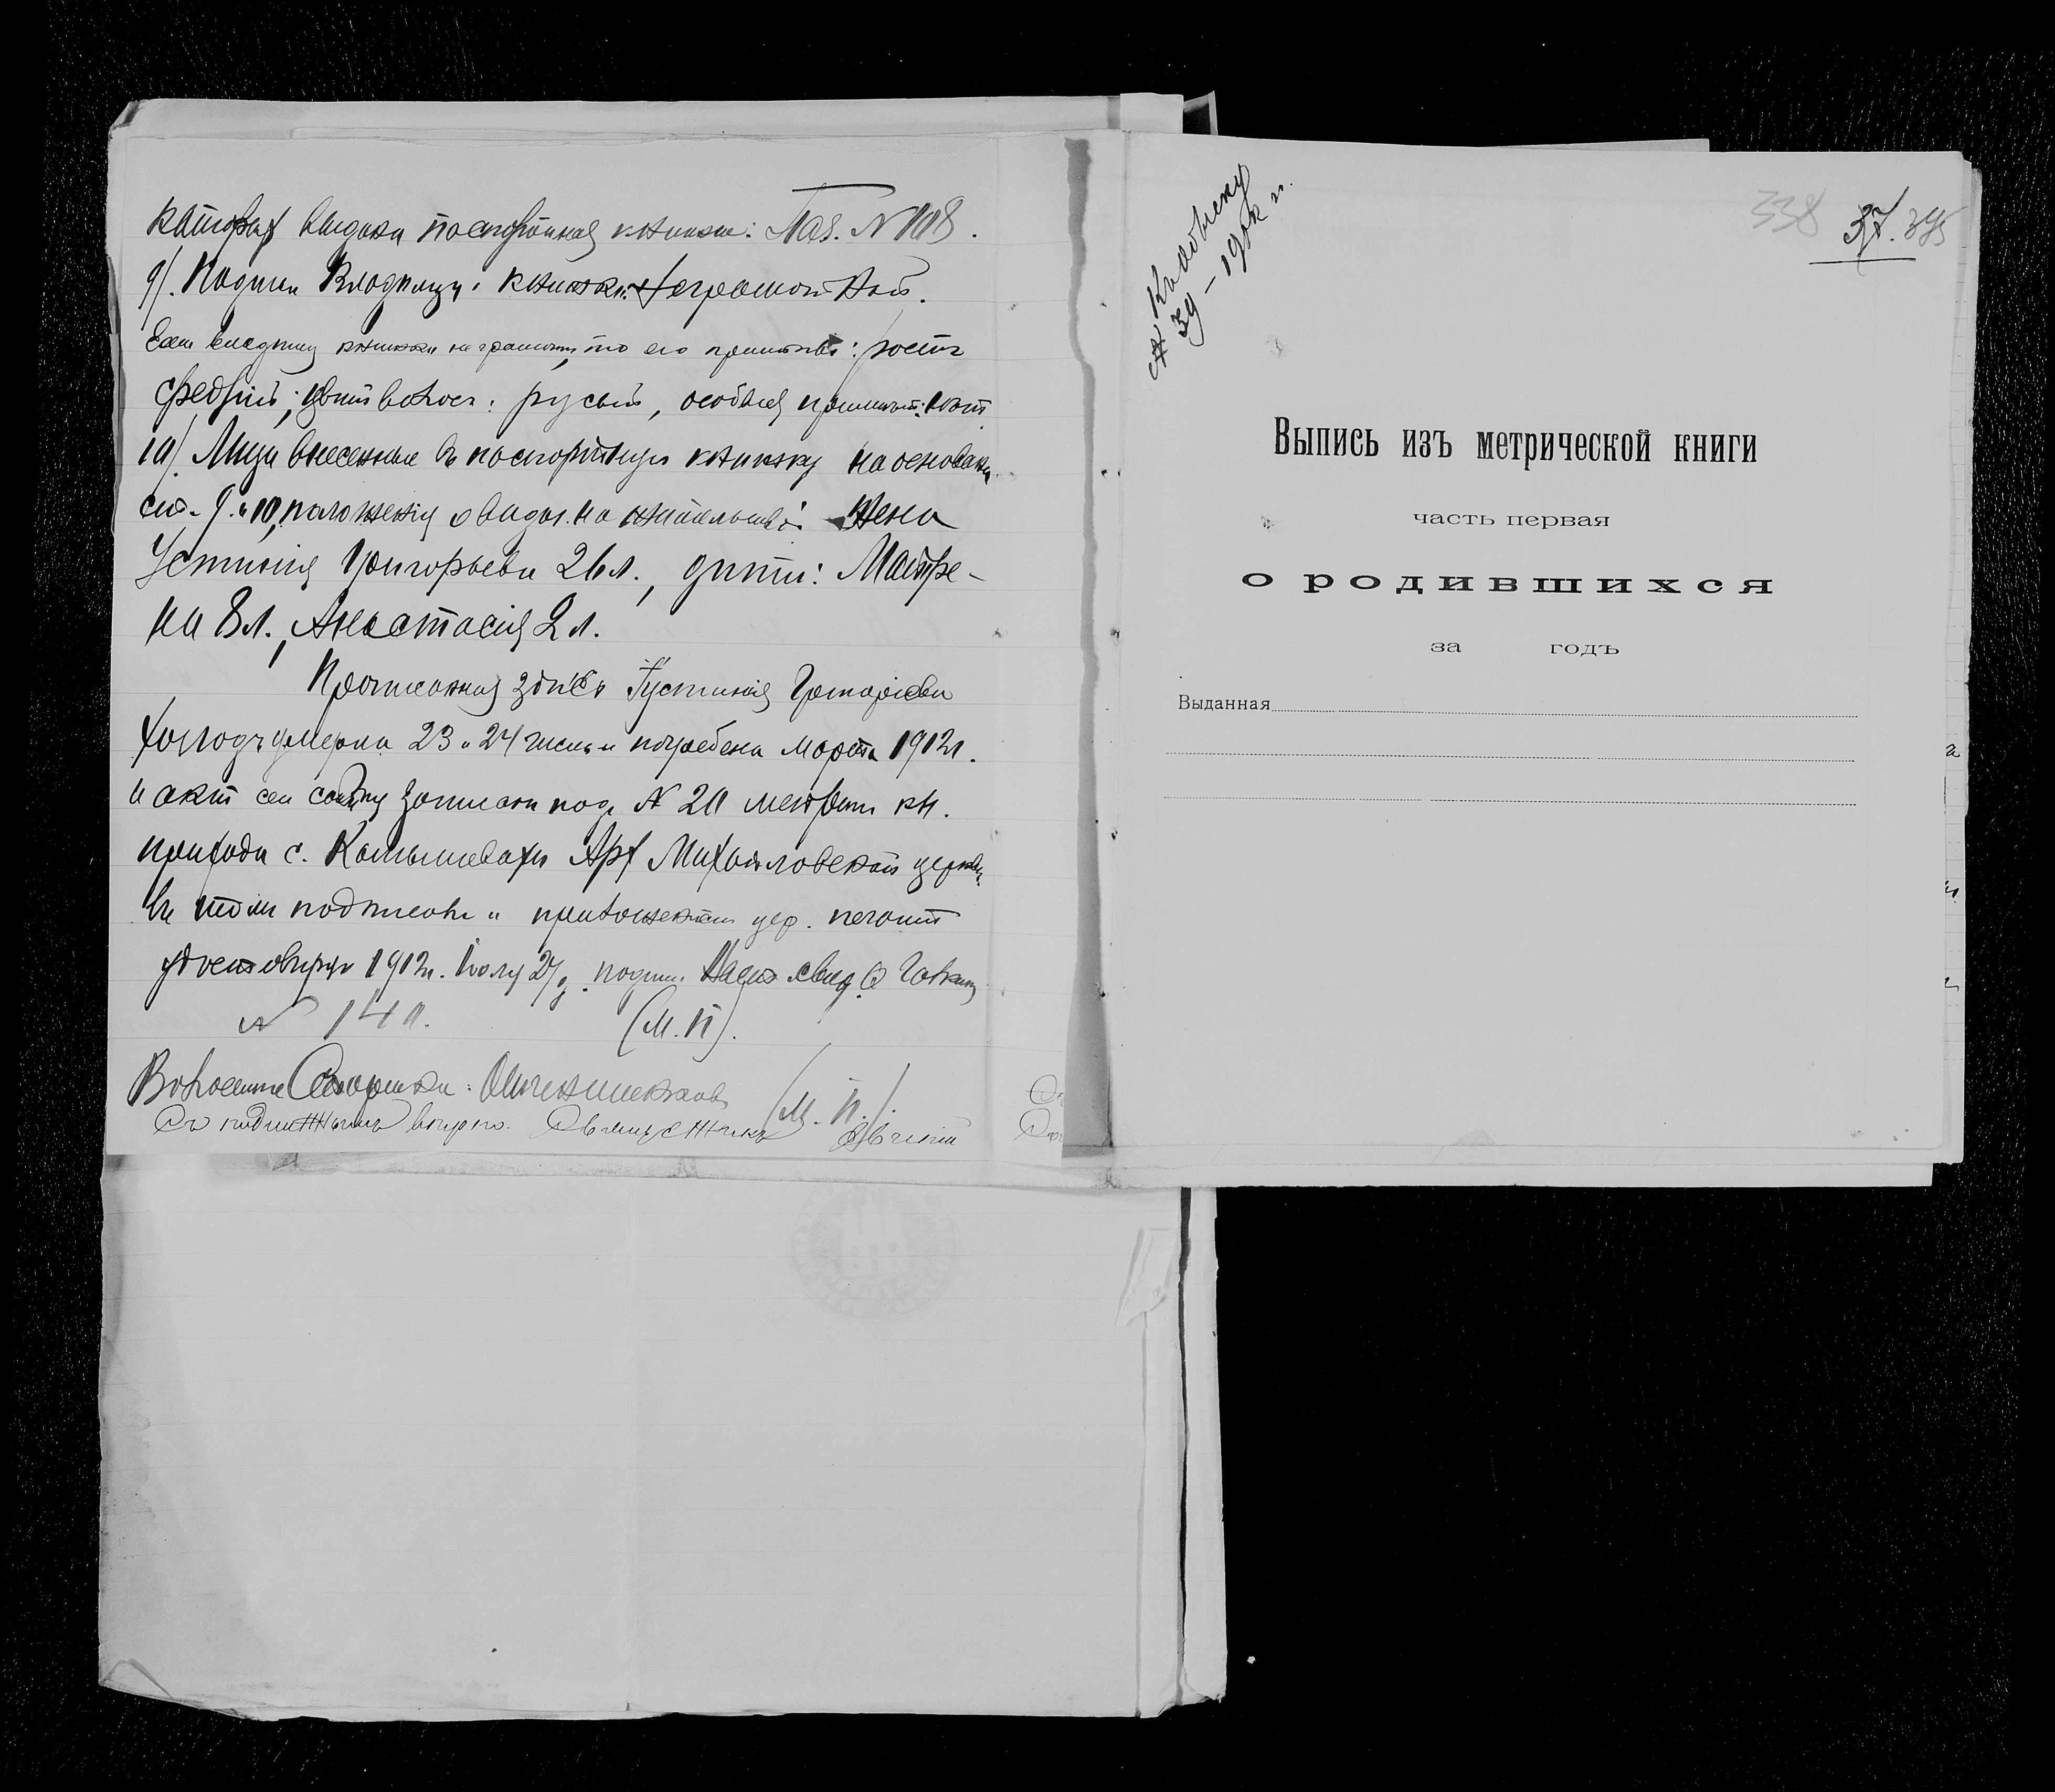 которых выдана паспортная книжка: Пас. N 118.
9). Подпись Владельца книжки: Неграмотный.
Если владелец книжки не грамотен, то его приметы: ростъ
средній; цвѣтъ волосъ: русый, особыя примѣты: нѣтъ
10). Лица внесенныя въ паспортную книжку на основаніи
ст. 9 и 10, положенія о видах на жительство: Жена
Устинія Григорьева 26 л., дѣти: Матре-
на 8 л., Анастасія 2 л.
Прописанная здѣсь Іустинія Григоріева
умерла 23 и 24 числа погребена Марта 1912 г.
и актъ сей записанъ подъ N 20 кн.
прихода с. Камышевахи Арх Михайловской церкви
въ томъ подписомъ и приложеніемъ цер. печати
удостовѣряю 1912 г. 27 д. подпис.
N 140. (М. П).
Волостной Старшина: (М. П.).
Съ подлиннымъ вѣрно:
338 37. 395
39 –
Выпись изъ метрической книги
часть первая
о родившихся
за годъ
Выданная